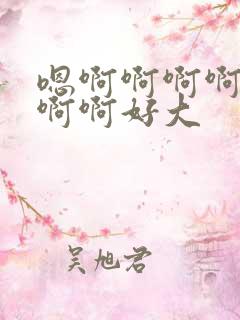 嗯啊啊啊啊
啊啊好大
吴旭君